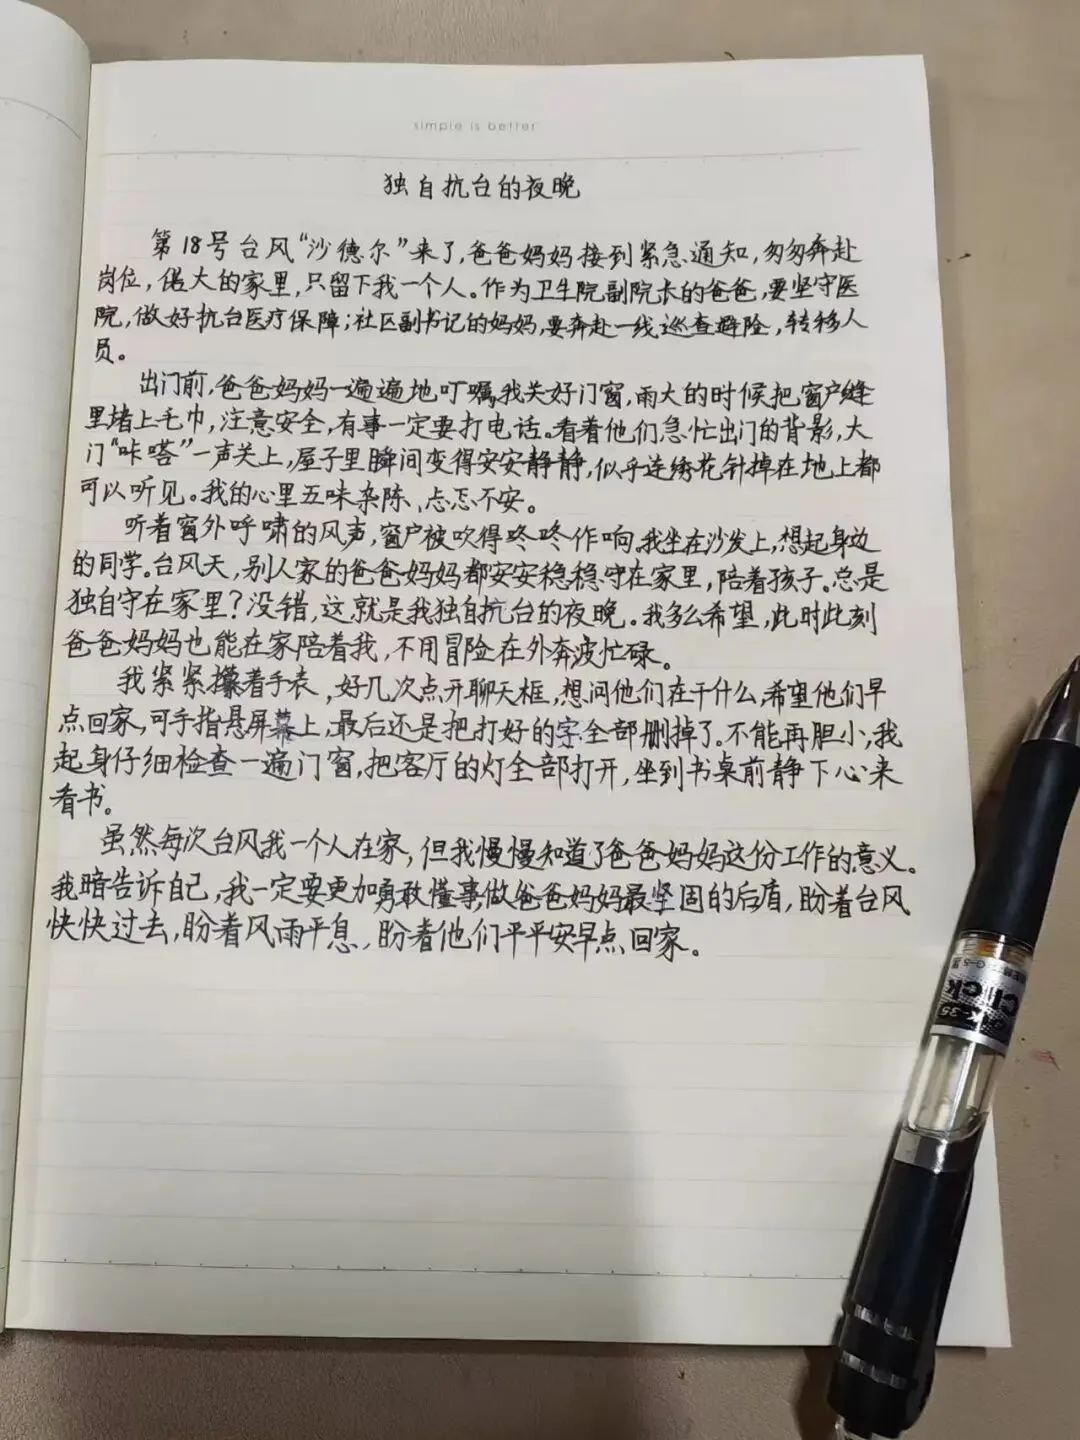 simple is better
独自抗台的夜晚
第18号台风“沙德尔”来了,爸爸妈妈接到紧急通知,匆匆奔赴
岗位,偌大的家里,只留下我一个人。作为卫生院副院长的爸爸,要坚守医
院,做好抗台医疗保障;社区副书记的妈妈,要奔赴一线巡查避险,转移人
员。
出门前,爸爸妈妈一遍遍地叮嘱,我关好门窗,雨大的时候把窗户缝
里堵上毛巾,注意安全,有事一定要打电话。看着他们急忙出门的背影,大
门“咔嗒”一声关上,屋子里瞬间变得安安静静,似乎连绣花针掉在地上都
可以听见。我的心里五味杂陈、忐忑不安。
听着窗外呼啸的风声,窗户被吹得咚咚作响,我坐在沙发上,想起身边
的同学。台风天,别人家的爸爸妈妈都安安稳稳守在家里,陪着孩子。总是
独自守在家里?没错,这就是我独自抗台的夜晚。我多么希望,此时此刻
爸爸妈妈也能在家陪着我,不用冒险在外奔波忙碌。
我紧紧攥着手表,好几次点开聊天框,想问他们在干什么,希望他们早
点回家,可手指悬屏幕上,最后还是把打好的字全部删掉了。不能再胆小,我
起身仔细检查一遍门窗,把客厅的灯全部打开,坐到书桌前静下心来
看书。
虽然每次台风我一个人在家,但我慢慢知道了爸爸妈妈这份工作的意义。
我暗告诉自己,我一定要更加勇敢懂事,做爸爸妈妈最坚固的后盾,盼着台风
快快过去,盼着风雨平息,盼着他们平平安早点回家。
Click
K-35
G-5